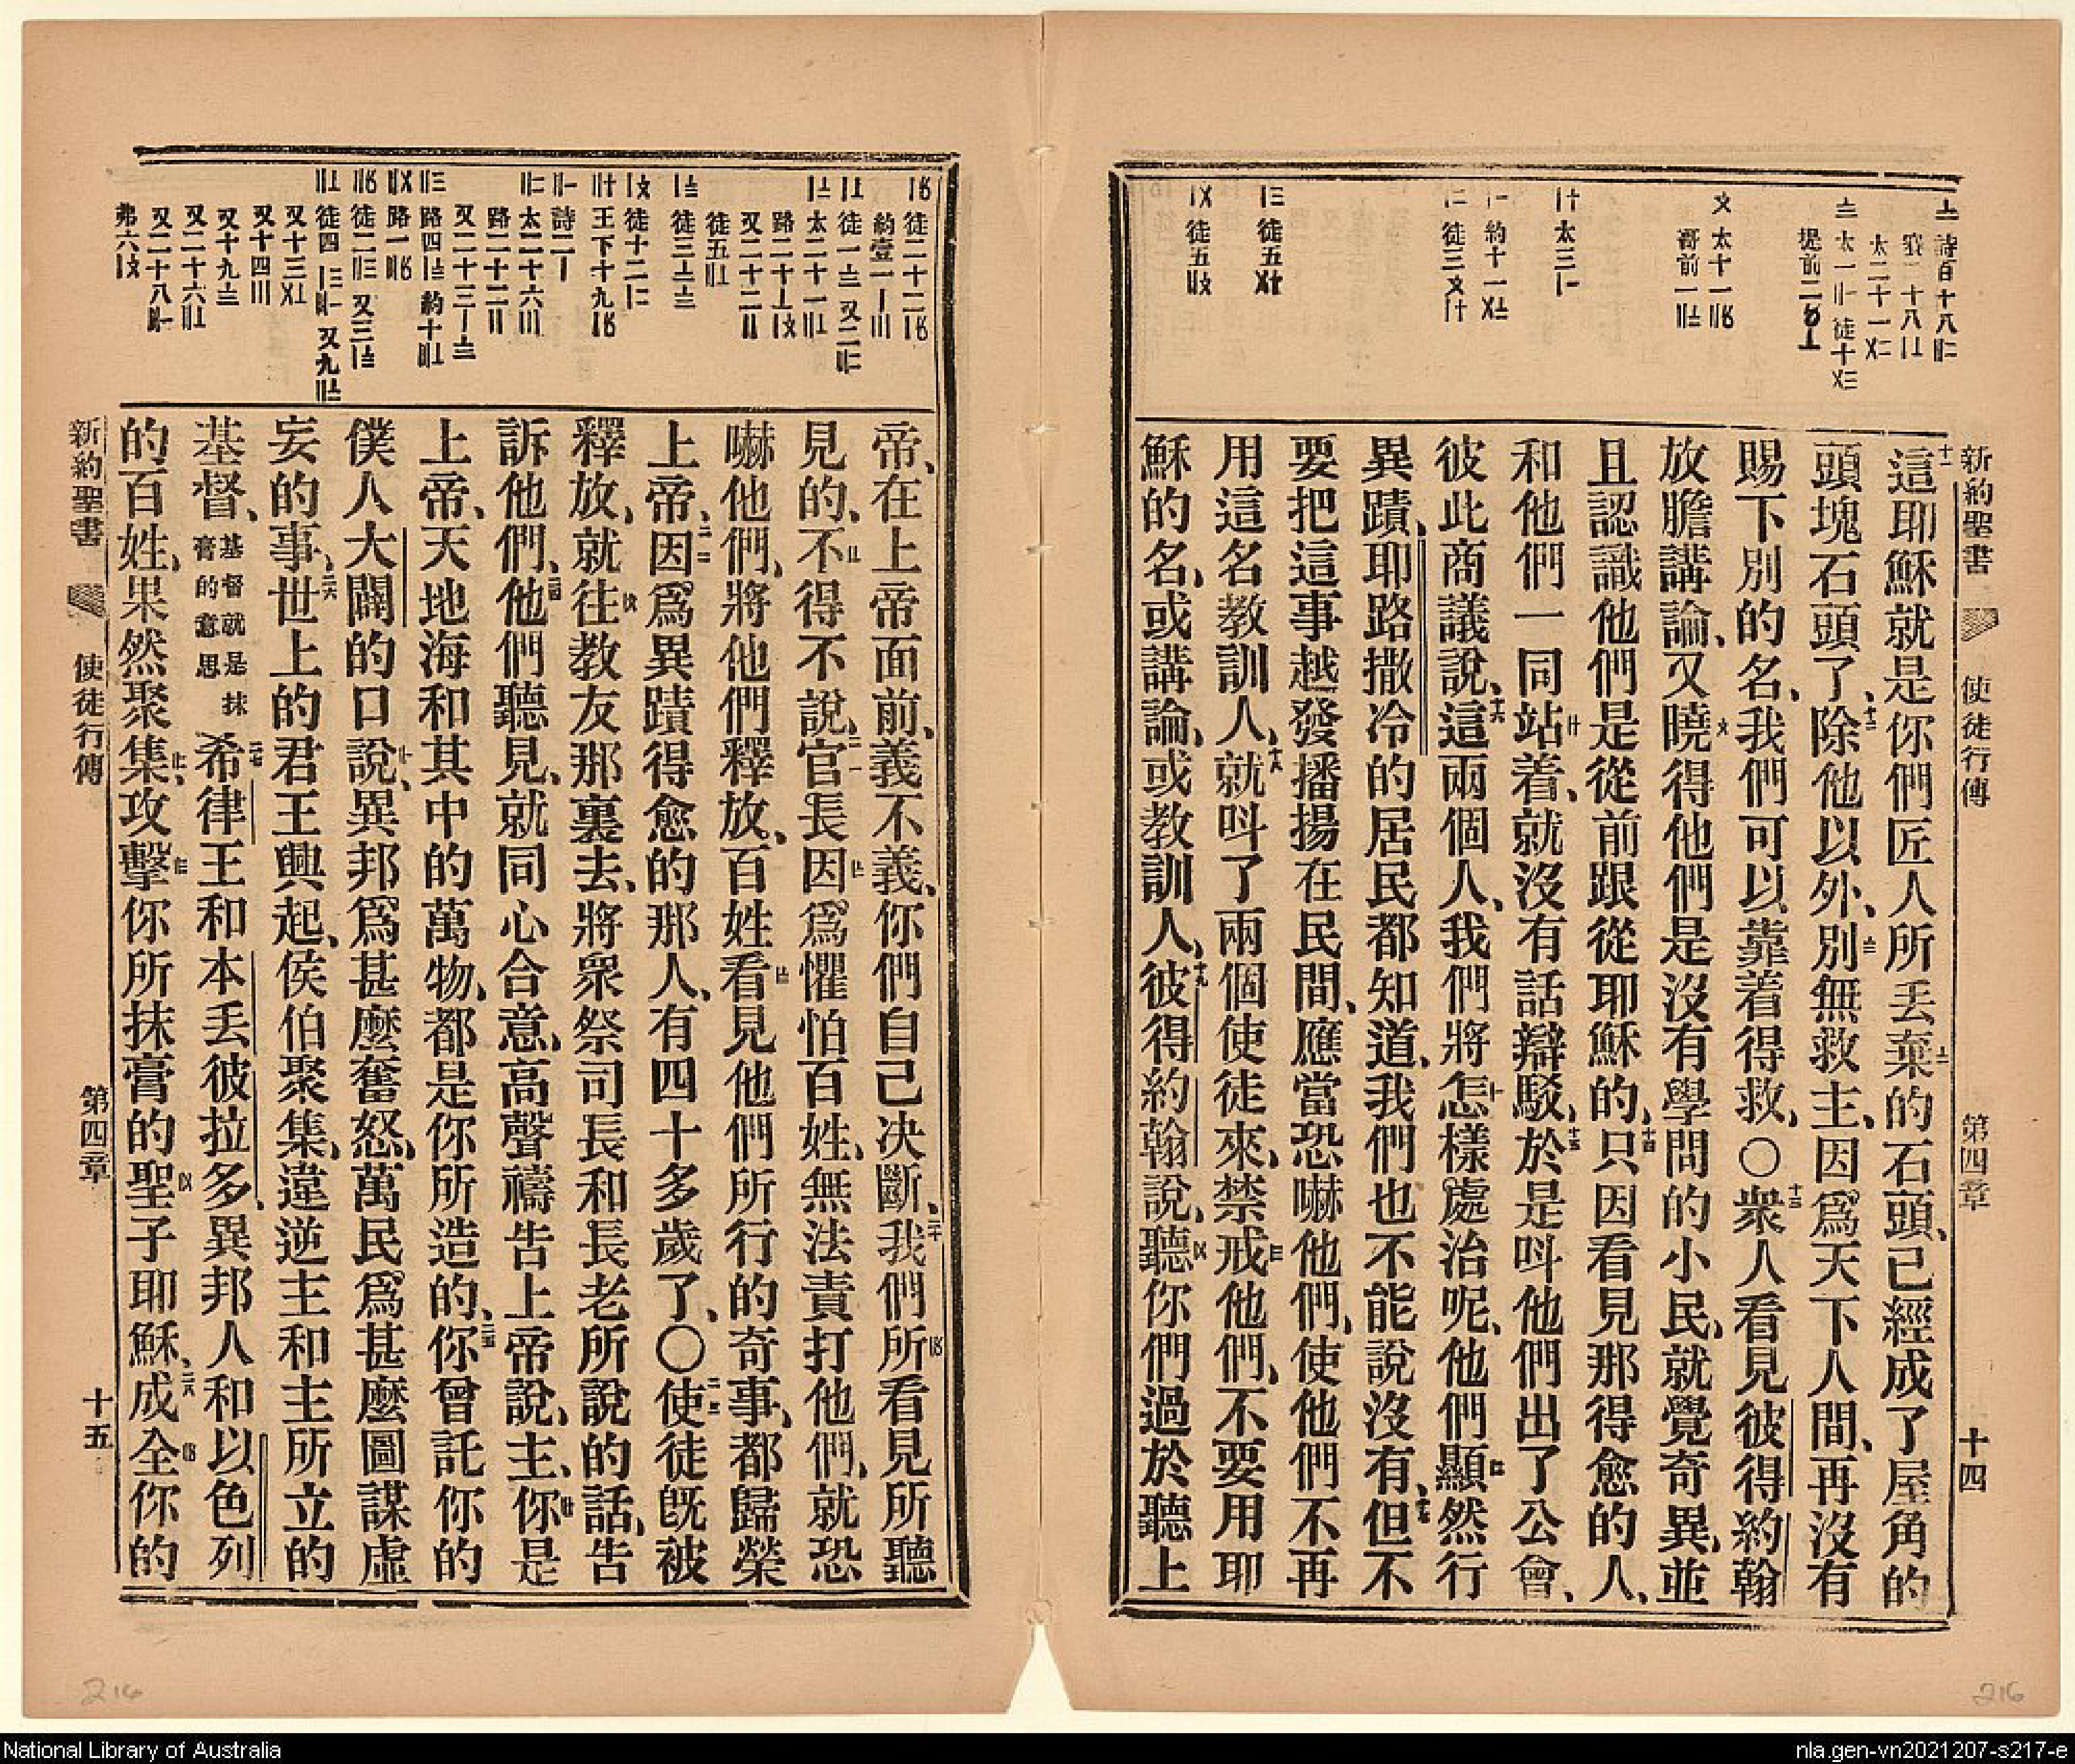 新約聖書 使徒行傳 第四章 十四
十一這耶穌就是你們匠人所丟棄的石頭、已經成了屋角的
頭塊石頭了、十二除他以外、別無救主、因爲天下人間、再沒有
賜下別的名、我們可以靠着得救、〇十三衆人看見彼得約翰
放膽講論、又曉得他們是沒有學問的小民、就覺奇異、並
且認識他們是從前跟從耶穌的、十四只因看見那得愈的人、
和他們一同站着、就沒有話辯駁、十五於是叫他們出了公會、
彼此商議說、十六這兩個人、我們將怎樣處治呢、他們顯然行
異蹟、耶路撒冷的居民都知道、我們也不能說沒有、十七但不
要把這事越發播揚在民間、應當恐嚇他們、使他們不再
用這名教訓人、十八就呌了兩個使徒來、禁戒他們、不要用耶
穌的名、或講論、或教訓人、十九彼得約翰說、聽你們過於聽上
帝、在上帝面前、義不義、你們自己决斷、二十我們所看見所聽
見的、不得不說、二一官長因爲懼怕百姓、無法責打他們、就恐
嚇他們、將他們釋放、百姓看見他們所行的奇事、都歸榮
上帝、二二因爲異蹟得愈的那人、有四十多歲了、〇二三使徒旣被
釋放、就往教友那裏去、將衆祭司長和長老所說的話、告
訴他們、二四他們聽見、就同心合意、高聲禱告上帝說、主、你是
上帝、天地海和其中的萬物、都是你所造的、二五你曾託你的
僕人大闢的口說、異邦爲甚麼奮怒、萬民爲甚麼圖謀虛
妄的事、二六世上的君王興起、侯伯聚集、違逆主和主所立的
基督、基督就是抹膏的意思二七希律王和本丢彼拉多、異邦人和以色列
的百姓、果然聚集、攻擊你所抹膏的聖子耶穌、二八成全你的
新約聖書 使徒行傳 第四章 十五
216
216
National Library of Australia
nla.gen-vn2021207-s217-e